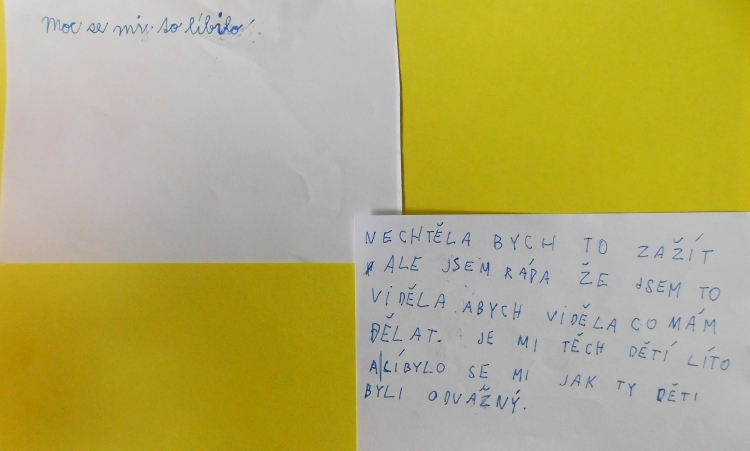 Moc se mi to líbilo.
NECHTĚLA BYCH TO ZAŽÍT
ALE JSEM RÁDA ŽE JSEM TO
VIDĚLA ABYCH VIDĚLA CO MÁM
DĚLAT. JE MI TĚCH DĚTÍ LÍTO
A LÍBYLO SE MI JAK TY DĚTI
BYLI ODVÁŽNÝ.